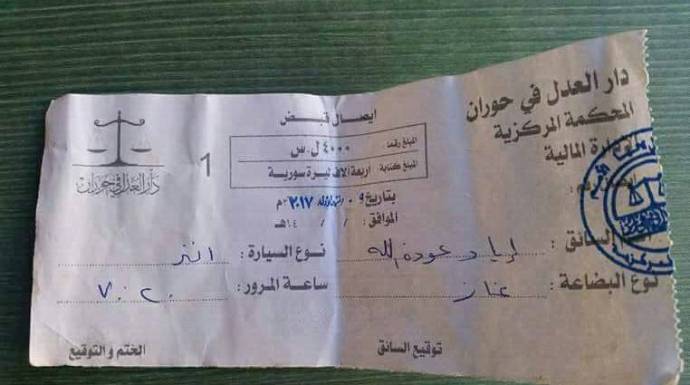 دار العدل في حوران
المحكمة المركزية
المالية
ايصال قبض
المبلغ رقما: ٤٠٠٠ ل.س
المبلغ كتابة: اربعة الاف ليرة سورية
1
دار العدل في حوران
بتاريخ ٢٠١٧ م
الموافق: / / ١٤هـ
السائق: اياد عودة الله
نوع السيارة: انتر
نوع البضاعة: غاز
ساعة المرور: ٧:٢٠
توقيع السائق
الختم والتوقيع